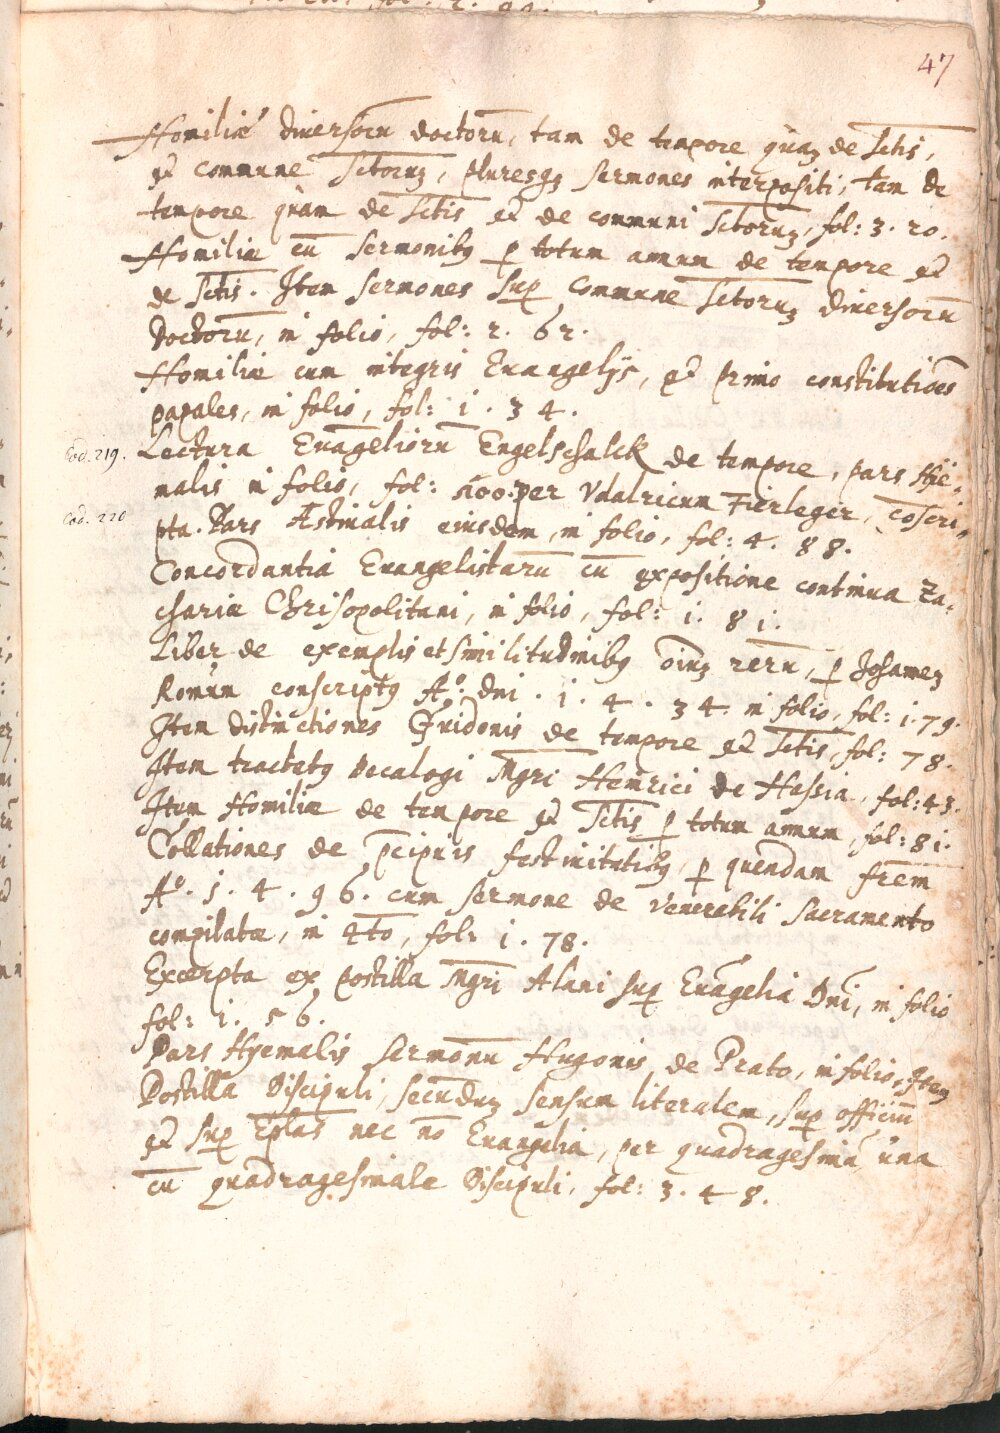 47
Homiliæ diversorū doctorū, tam de tempore quaʒ de Sctis,
et commune Sctoruʒ, pluresqʒ sermones interpositi, tam de
tempore quàm de Sctis et de communi Sctoruʒ, fol: 3. 20.
Homiliæ cū sermonibʒ p totum annum de tempore et
de Sctis. Item sermones Sup commune Sctoruʒ diversorū
Doctorū, in folio, fol: 2. 62.
Homiliæ cum integris Evangelijs, et primo constitutiões
papales, in folio, fol: 1. 34.
Cod. 219. Lectura Evāgeliorū Engelschalck de tempore, pars Hije-
malis in folio, fol: 400. per Udalricum Fierleger, cōscri-
Cod. 220 pta. Pars Æstivalis eiusdem, in folio, fol: 4. 88.
Concordantia Evangelistarū cū expositione continua Za-
chariæ Chrisopolitani, in folio, fol: 1. 81.
Liber de exemplis et similitudinibʒ oīuʒ rerū, p Johaneʒ
Romūm conscriptʒ Aº. dni. 1. 4. 34. in folio, fol: 1. 79.
Item distinctiones Gvidonis de tempore et Sctis, fol: 78.
Item tractatʒ Decalogi Mgri Henrici de Hassia, fol: 43.
Item Homiliæ de tempore et Sctis p totum annum, fol: 81.
Collationes de pcipuis festivitatibʒ, p quendam frem
Aº. 1. 4. 96. cum sermone de Venerabili Sacramento
compilatæ, in 4to, fol: 1. 78.
Excerpta ex postilla Mgri Alani sup Evāgelia Dni, in folio
fol: 1. 56.
Pars Hyemalis sermonū Hugonis de Prato, in folio, Item
Postilla Discipuli, secunduʒ sensum literalem, sup officiū
et sup Eplas nec nō Evangelia, per quadragesimā unā
cū quadragesimale Discipuli, fol: 3. 48.